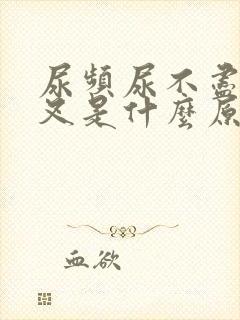 尿頻尿不盡
又是什麼原
血欲